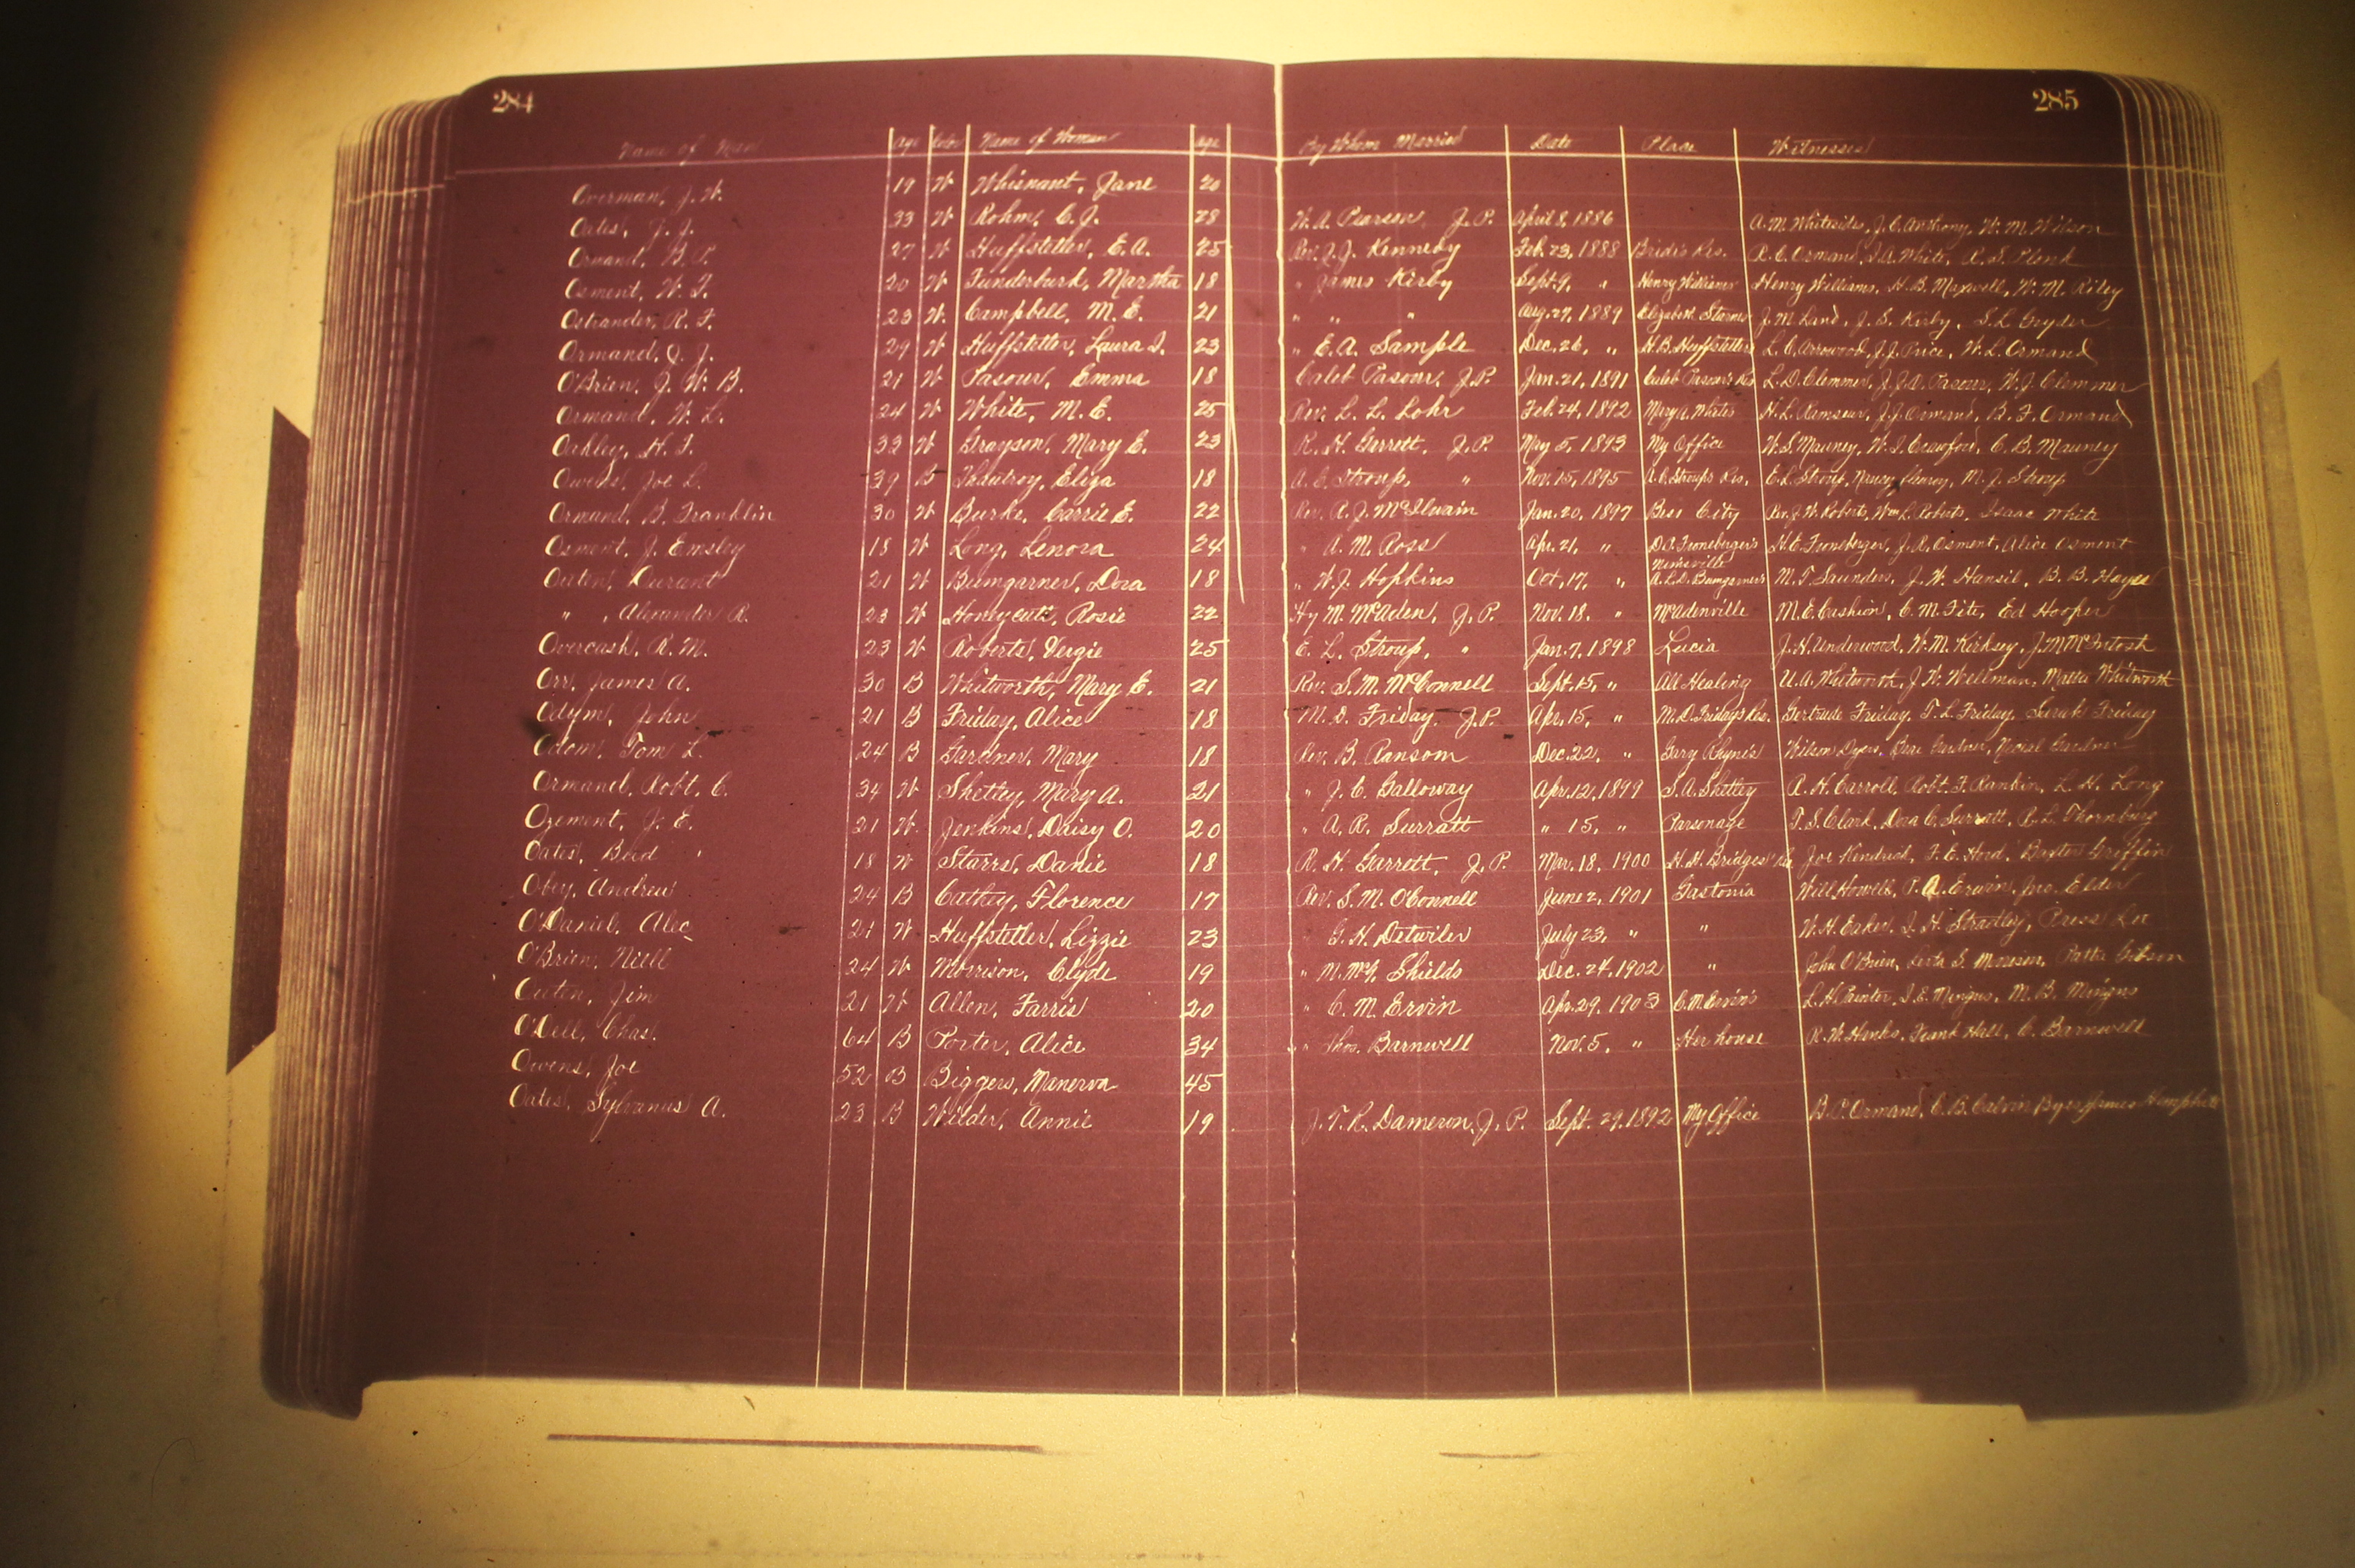 284 285
Name of Man Age Color Name of Woman Age By Whom Married Date Place Witnesses
Overman, J. W. 19 W Whisnant, Jane 20
Oates, J. J. 33 W Rohm, C. J. 28 W. A. Pearson, J. P. April 8, 1886 A. M. Whitesides, J. C. Anthony, W. M. Wilson
Ormand, B. P. 27 W Huffstetler, E. A. 25 Rev. J. J. Kennedy Feb. 23, 1888 Bride's Res. R. C. Ormand, J. A. White, R. S. Plonk
Osment, W. T. 20 W Funderburk, Martha 18 " James Kirby Sept. 9, " Henry Williams Henry Williams, H. B. Maxwell, W. M. Riley
Ostrander, R. F. 23 W. Campbell, M. E. 21 " " " Aug. 27, 1889 Elizabeth J. M. Land, J. S. Kirby, S. L. Gryder
Ormand, J. J. 29 W Huffstetler, Laura I. 23 " E. A. Sample Dec. 26, " H. B. Huffstetler L. C. Arrowood, J. J. Price, W. L. Ormand
O'Brien, J. W. B. 21 W Pasour, Emma 18 Caleb Pasour, J. P. Jan. 21, 1891 Caleb Pasour's Res L. D. Clemmer, J. J. D. Pasour, W. J. Clemmer
Ormand, W. L. 24 W White, M. E. 25 Rev. L. L. Lohr Feb. 24, 1892 Mary A. White's H. L. Ramseur, J. J. Ormand, B. F. Ormand
Oakley, H. T. 33 W Grayson, Mary E. 23 R. H. Garrett, J. P. May 5, 1893 My Office W. S. Mauney, W. I. Crawford, C. B. Mauney
Owens, Joe L. 39 B Eliza 18 A. C. Stroup, " Nov. 15, 1895 A. C. Stroup's Res. E. L. Stroup, Nancy M. J. Stroup
Ormand, B. Franklin 30 W Burke, Carrie E. 22 Rev. R. J. McIlwain Jan. 20, 1897 Bess City Rev. J. W. Roberts, Wm L. Roberts, Isaac White
Osment, J. Emsley 18 W Long, Lenora 24 " A. M. Ross Apr. 21, " D. A. Froneberger's H. E. Froneberger, J. R. Osment, Alice Osment
Outen, Durant 21 W Bumgarner, Dora 18 " W. J. Hopkins Oct. 17, " A. L. D. Bumgarner's M. T. Saunders, J. W. Hansil, B. B. Hayes
" , Alexander R. 23 W Honeycutt, Rosie 22 Hy M. McAden, J. P. Nov. 18. " McAdenville M. E. Cashion, C. M. Fite, Ed Hooper
Overcash, R. M. 23 W Roberts, Vergie 25 E. L. Stroup, " Jan. 7, 1898 Lucia J. H. Underwood, W. M. Kirksey, J. M. McIntosh
Orr, James A. 30 B Whitworth, Mary E. 21 Rev. S. M. McConnell Sept. 15, " All Healing U. A. Whitworth, J. W. Wellman, Matta Whitworth
Odym, John 21 B Friday, Alice 18 M. D. Friday, J. P. Apr. 15, " M. D. Friday's Res. Gertrude Friday, T. L. Friday, Sarah Friday
Odom, Tom L. 24 B Gardner, Mary 18 Rev. B. Ransom Dec. 22, " Gary Rhyne's Wilson Dyers, Gardner, Gardner
Ormand, Robt. C. 34 W Shetley, Mary A. 21 " J. C. Galloway Apr. 12, 1899 S. A. Shetley R. H. Carroll, Robt. F. Rankin, L. H. Long
Ozement, J. E. 21 W. Jenkins, Daisy O. 20 " A. R. Surratt " 15, " Parsonage T. S. Clark, Dora C. Surratt, R. L. Thornburg
Oates, 18 W Starrs, Danie 18 R. H. Garrett, J. P. Mar. 18, 1900 H. H. Bridges' Res Joe Kendrick, F. E. Hord, Baxter Griffin
Obey, Andrew 24 B Cathey, Florence 17 Rev. S. M. O'Connell June 2, 1901 Gastonia Will Howell, P. A. Erwin, Jno. Elder
O'Daniel, Alec 21 W Huffstetler, Lizzie 23 " G. H. Detwiler July 23, " " W. H. Eaker, J. H. Stradley, Press Lee
O'Brien, Niell 24 W Morrison, Clyde 19 " M. McG. Shields Dec. 24, 1902 " John O'Brien, Pattie Gibson
Outen, Jim 21 W Allen, Farris 20 " C. M. Ervin Apr. 29, 1903 C. M. Ervin's L. H. Painter, J. E. Mingus, M. B. Mingus
O'Dell, Chas. 64 B Porter, Alice 34 " Thos. Barnwell Nov. 5, " Her house R. W. Hanks, Frank Hall, C. Barnwell
Owens, Joe 52 B Biggers, Manerva 45
Oates, Sylvanus A. 23 B Wilder, Annie 19 J. T. R. Dameron, J. P. Sept. 29, 1892 My Office B. P. Ormand, C. B. Calvin Byers James Hemphill